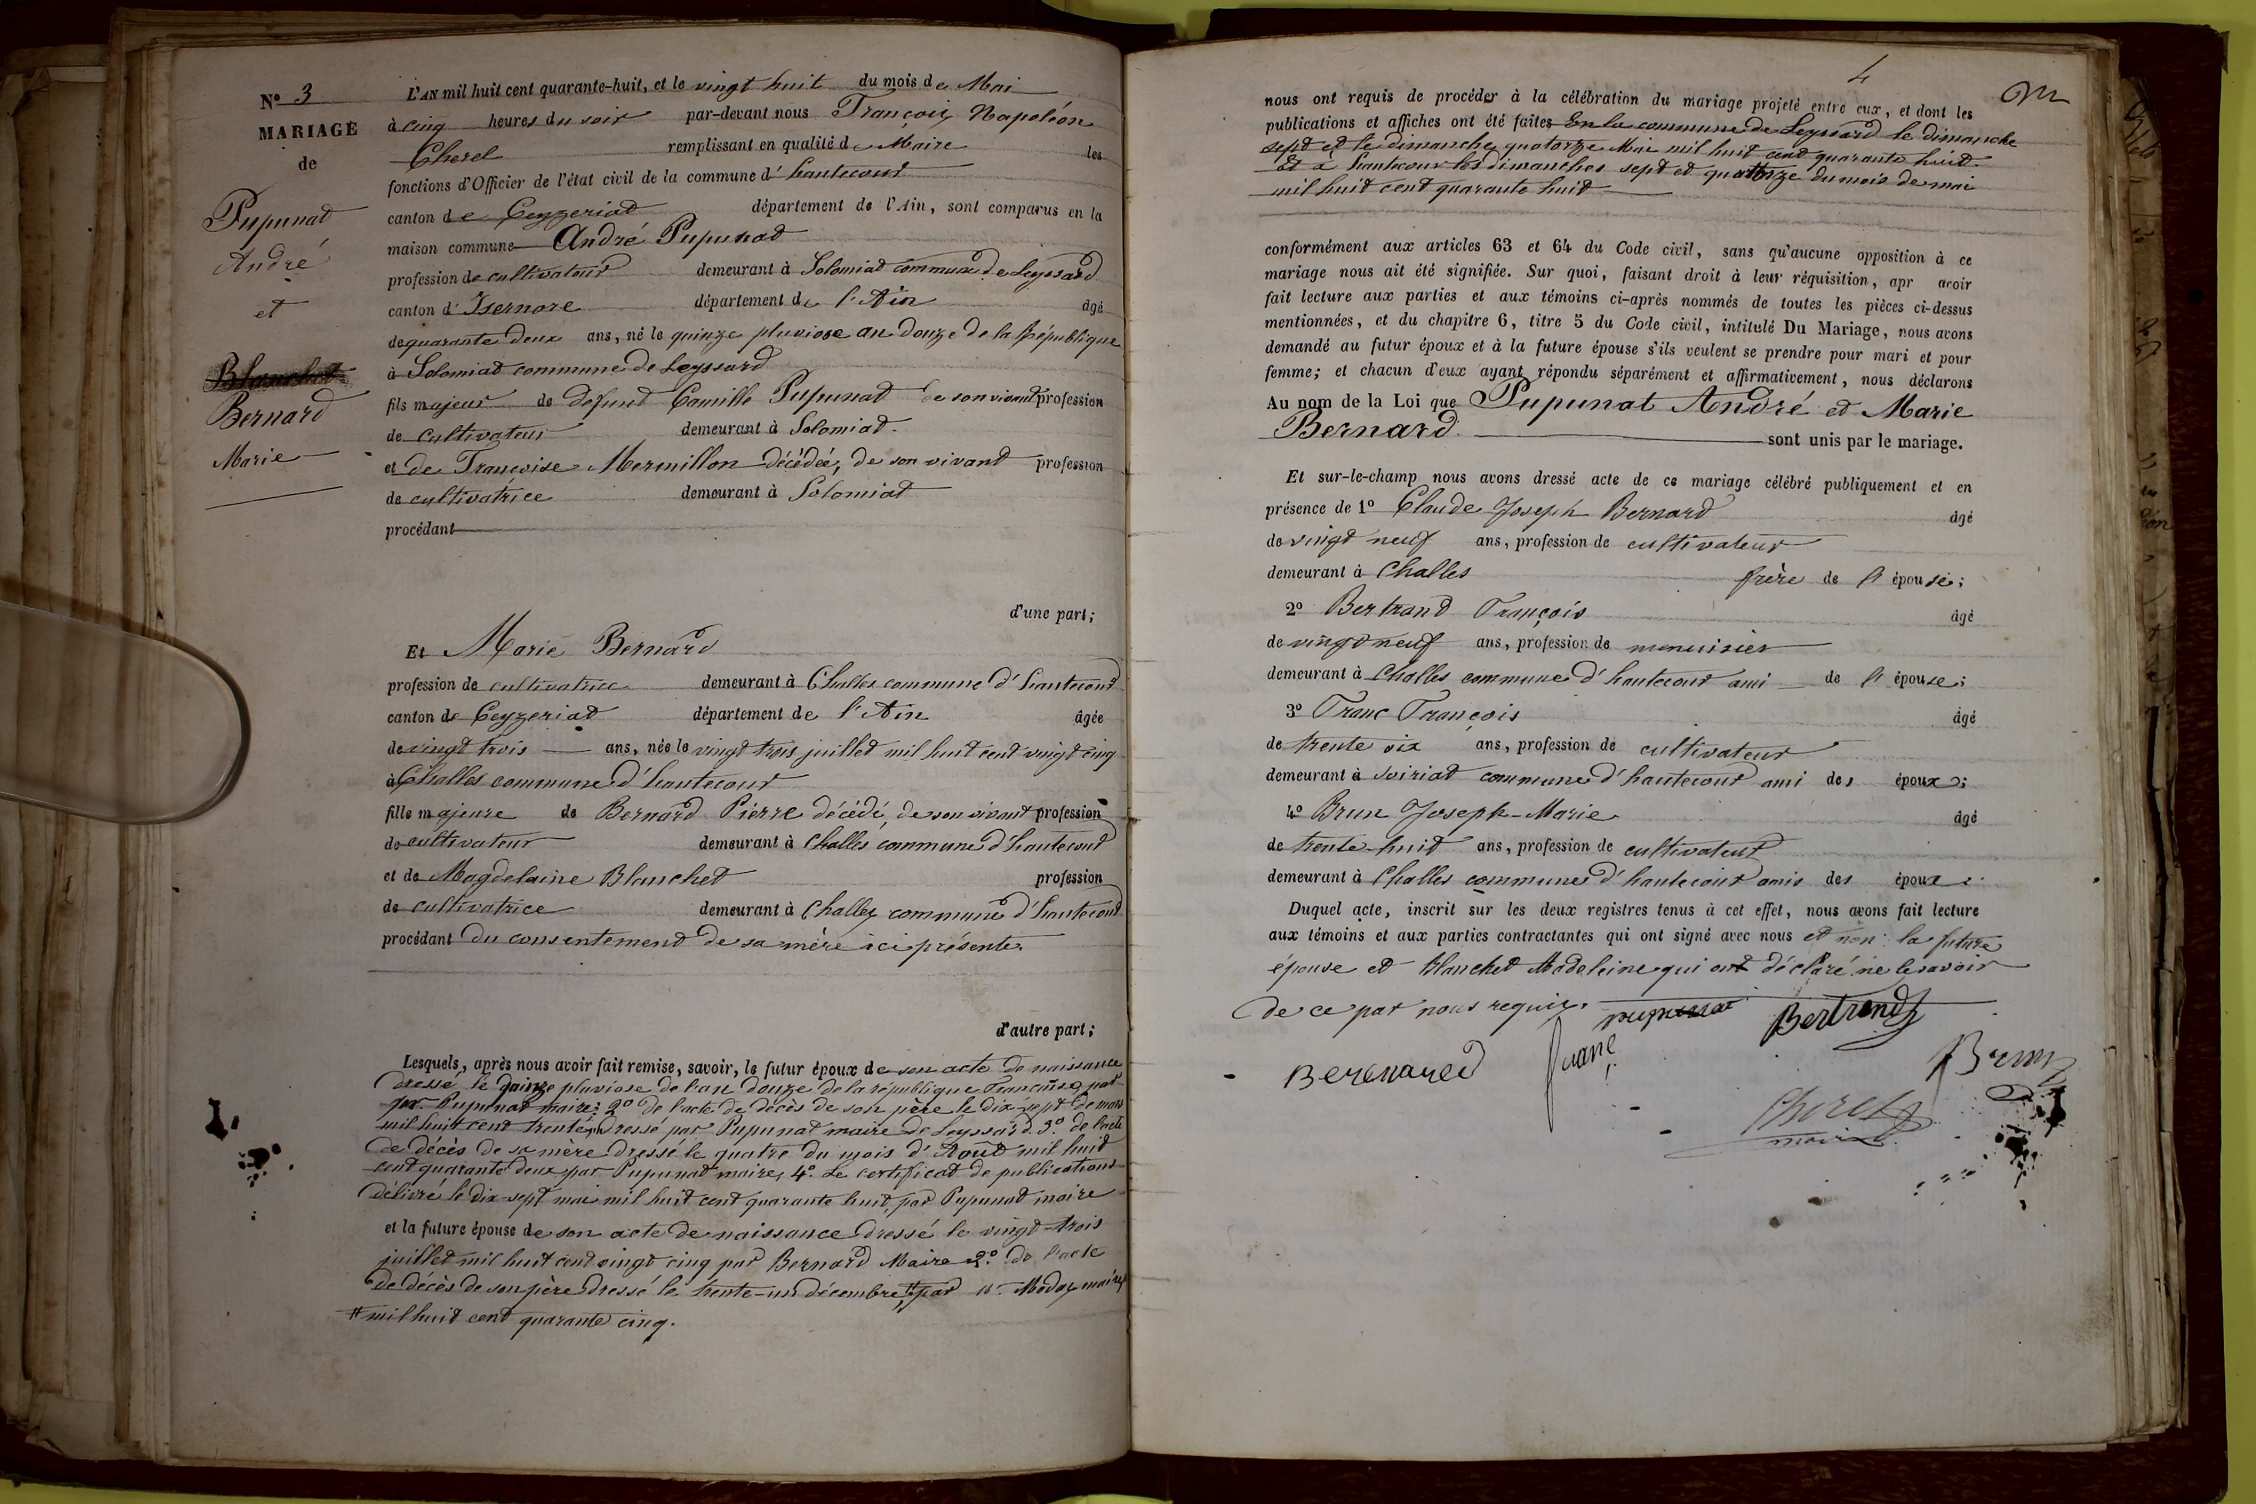 Nº 3
MARIAGE
de
Pupunat
André
et
Bernard
Marie
L'AN mil huit cent quarante-huit, et le vingt huit du mois de Mai
à cinq heures du soir par-devant nous François Napoléon
Cherel remplissant en qualité de Maire les
fonctions d'Officier de l'état civil de la commune d'hautecour
canton de Ceyzeriat département de l'Ain, sont comparus en la
maison commune André Pupunat
profession de cultivateur demeurant à Solomiat commune de Leyssard
canton d'Isernore département de l'Ain âgé
de quarante deux ans, né le quinze pluviose an douze de la République
à Solomiat commune de Leyssard
fils majeur de defunt Camille Pupunat de son vivant profession
de cultivateur demeurant à Solomiat.
et de Françoise Mermillon décédée, de son vivant profession
de cultivatrice demeurant à Solomiat
procédant
d'une part;
Et Marie Bernard
profession de cultivatrice demeurant à Challes commune d'hautecour
canton de Ceyzeriat département de l'Ain âgée
de vingt trois ans, née le vingt trois juillet mil huit cent vingt cinq
à Challes commune d'hautecour
fille majeure de Bernard Pierre décédé, de son vivant profession
de cultivateur demeurant à Challes commune d'hautecour
et de Magdelaine Blanchet profession
de cultivatrice demeurant à Challes commune d'hautecour
procédant du consentement de sa mère ici présente.
d'autre part;
Lesquels, après nous avoir fait remise, savoir, le futur époux de son acte de naissance
dressé le quinze pluviose de l'an douze de la république Française par
Pupunat maire; 2º de l'acte de décès de son père le dix-sept de mars
mil huit cent trente, dressé par Pupunat maire de Leyssard. 3º. de l'acte
de décès de sa mère dressé le quatre du mois d'Août mil huit
cent quarante deux par Pupunat maire, 4º. Le certificat de publications
délivré le dix-sept mai mil huit cent quarante huit, par Pupunat maire
et la future épouse de son acte de naissance dressé le vingt-trois
juillet mil huit cent vingt cinq par Bernard Maire 2º. de l'acte
de décès de son père dressé le trente-un décembre # par Mr. Moday maire
# mil huit cent quarante cinq.
4
nous ont requis de procéder à la célébration du mariage projeté entre eux, et dont les
publications et affiches ont été faites En la commune de Leyssard le dimanche
sept et le dimanche quatorze Mai mil huit cent quarante huit
Et à hautecour les dimanches sept et quatorze du mois de mai
mil huit cent quarante huit
conformément aux articles 63 et 64 du Code civil, sans qu'aucune opposition à ce
mariage nous ait été signifiée. Sur quoi, faisant droit à leur réquisition, apr avoir
fait lecture aux parties et aux témoins ci-après nommés de toutes les pièces ci-dessus
mentionnées, et du chapitre 6, titre 5 du Code civil, intitulé Du Mariage, nous avons
demandé au futur époux et à la future épouse s'ils veulent se prendre pour mari et pour
femme; et chacun d'eux ayant répondu séparément et affirmativement, nous déclarons
Au nom de la Loi que Pupunat André et Marie
Bernard sont unis par le mariage.
Et sur-le-champ nous avons dressé acte de ce mariage célébré publiquement et en
présence de 1º Claude Joseph Bernard âgé
de vingt neuf ans, profession de cultivateur
demeurant à Challes frère de l'épouse;
2º Bertrand François âgé
de vingt neuf ans, profession de menuisier
demeurant à Challes commune d'hautecour ami de l'épouse;
3º Franc François âgé
de trente six ans, profession de cultivateur
demeurant à Soiriat commune d'hautecour ami des époux;
4º Brun Joseph-Marie âgé
de trente-huit ans, profession de cultivateur
demeurant à Challes commune d'hautecour amis des époux.
Duquel acte, inscrit sur les deux registres tenus à cet effet, nous avons fait lecture
aux témoins et aux parties contractantes qui ont signé avec nous et non la future
épouse et Blanchet Madeleine qui ont déclaré ne le savoir
de ce par nous requis.
pupunat Bertrand
Berenared franc Brun
Cherel
maire